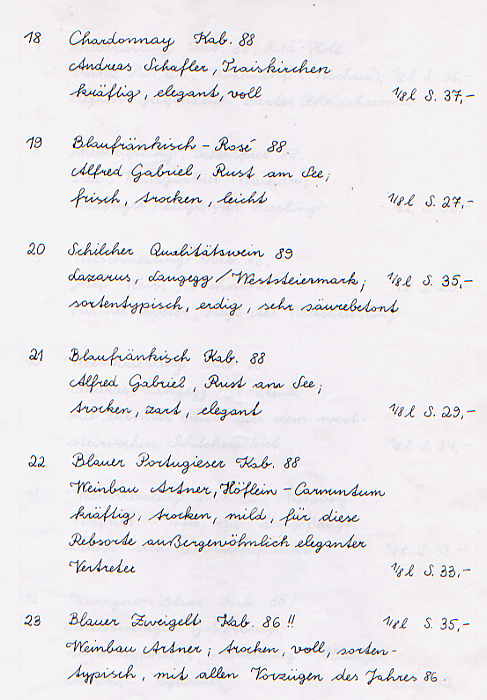 18 Chardonnay Kab. 88
Andreas Schafler, Traiskirchen
kräftig, elegant, voll 1/8 l S. 37,-
19 Blaufränkisch - Rosé 88
Alfred Gabriel, Rust am See;
frisch, trocken, leicht 1/8 l S. 27,-
20 Schilcher Qualitätswein 89
Lazarus, Langegg / Weststeiermark; 1/8 l S. 35,-
sortentypisch, erdig, sehr säurebetont
21 Blaufränkisch Kab. 88
Alfred Gabriel, Rust am See;
trocken, zart, elegant 1/8 l S. 29,-
22 Blauer Portugieser Kab. 88
Weinbau Artner, Höflein - Carnuntum
kräftig, trocken, mild, für diese
Rebsorte außergewöhnlich eleganter
Vertreter 1/8 l S. 33,-
23 Blauer Zweigelt Kab. 86 !! 1/8 l S. 35,-
Weinbau Artner; trocken, voll, sorten-
typisch, mit allen Vorzügen des Jahres 86.